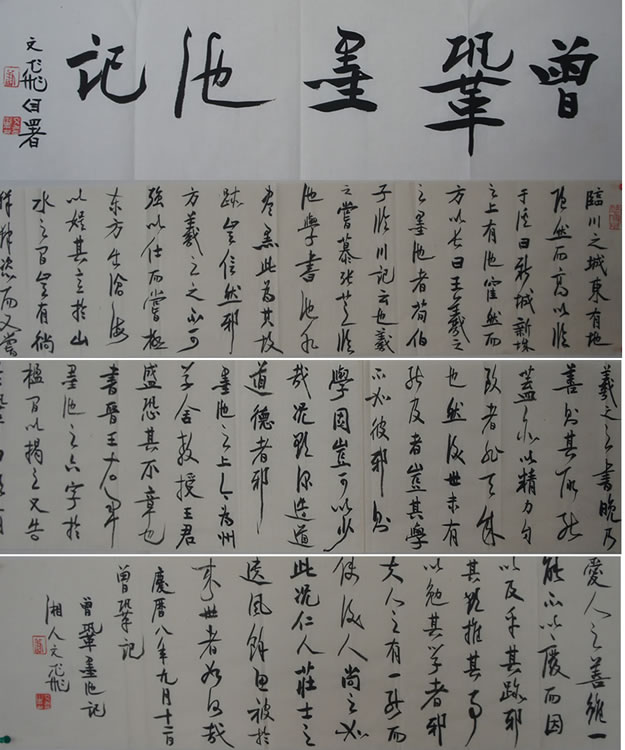 曾鞏墨池記
臨川之城東有地
隱然而高以臨
于溪曰新城新城
之上有池窪然而
方以長曰王羲之
之墨池者荀伯
子臨川記云也羲
之嘗慕張芝臨
池學書池水
盡黑此為其故
跡豈信然邪
方羲之之不可
強以仕而嘗極
東方出滄海
以娛其意於山
水之間豈有徜
徉肆恣而又嘗
羲之之書晚乃
善則其所能
蓋亦以精力自
致者非天成
也然後世未有
能及者豈其學
不如彼邪則
學固豈可以少
哉況欲深造道
德者邪
墨池之上今為州
學舍教授王君
盛恐其不章也
書晉王右軍
墨池之六字於
楹間以揭之又告
愛人之善雖一
能不以廢而因
以及乎其跡邪
其欲推其事
以勉其學者邪
夫人之有一能而
使後人尚之如
此況仁人莊士之
遺風餘思被於
來世者如何哉
慶曆八年九月十二日
曾鞏記
曾鞏墨池記
湘人文飛